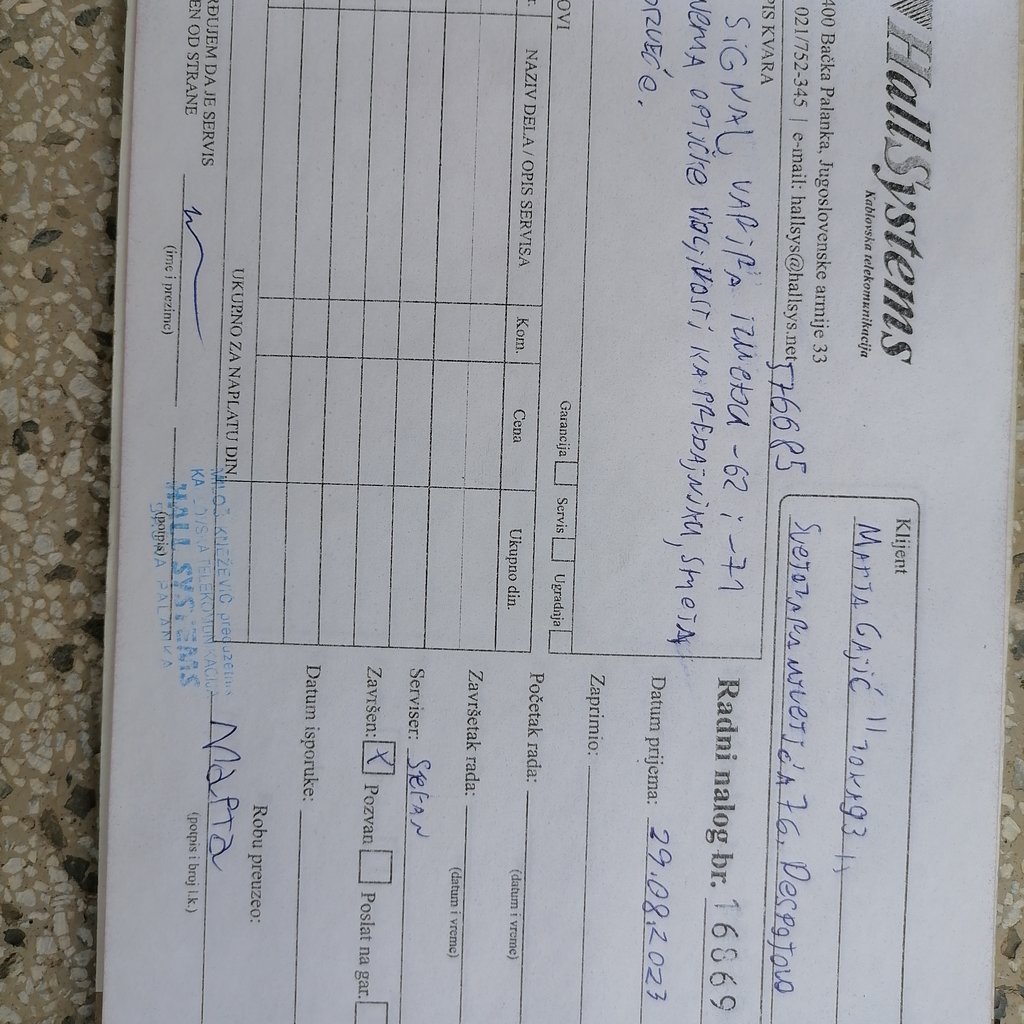 HallSystems
Kablovska telekomunikacija
400 Bačka Palanka, Jugoslovenske armije 33
021/752-345 | e-mail: hallsys@hallsys.net
576685
Klijent
MARTA GAJIĆ "ZOKA93"
SVETOZARA MILETIĆA 76, DESPOTOVO
PIS KVARA
SIGNAL VARIRA IZMEĐU -62 i -71
NEMA OPTIČKE VIDLJIVOSTI KA PREDAJNIKU, SMETA
DRVEĆE.
Radni nalog br. 16869
Datum prijema: 29.08.2023
Zaprimio:
Početak rada:
(datum i vreme)
Završetak rada:
(datum i vreme)
Serviser: STEFAN
Završen: X Pozvan Poslat na gar.
Datum isporuke:
Garancija Servis Ugradnja
OVI
NAZIV DELA / OPIS SERVISA Kom. Cena Ukupno din.
UKUPNO ZA NAPLATU DIN
RĐUJEM DA JE SERVIS
EN OD STRANE
(ime i prezime)
(potpis)
MILOŠ KNEŽEVIĆ preduzetnik
KABLOVSKA TELEKOMUNIKACIJA
HALL SYSTEMS
BAČKA PALANKA
Robu preuzeo:
Marta
(potpis i broj l.k.)